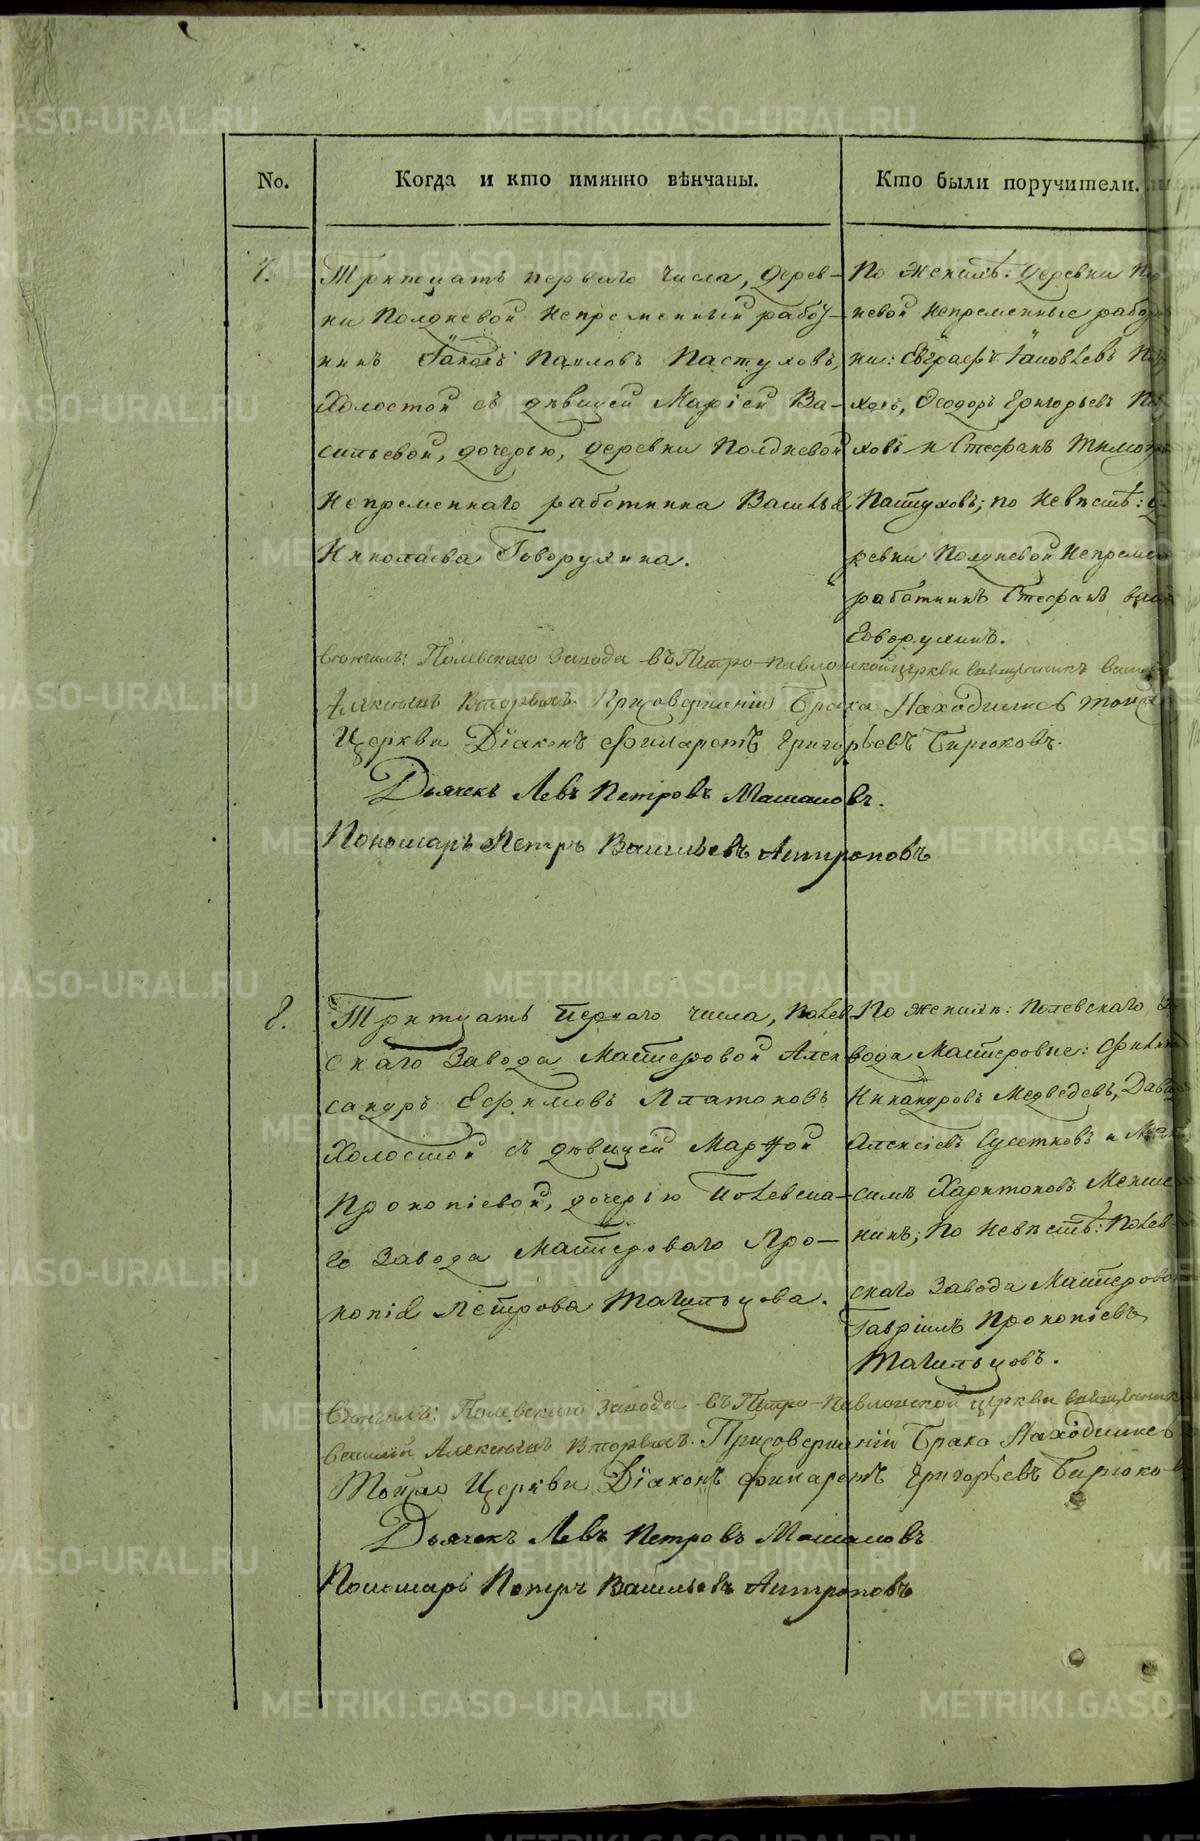 No.
Когда и кто имянно вѣнчаны.
Кто были поручители.
7.
Тритцать перваго числа, дерев-
ни Полдневой непременный работ-
никъ Іаковъ Павловъ Пастуховъ,
холостой съ дѣвицей Маріей Ва-
сильевой, дочерью, деревни Полдневой
непременнаго работника Василья
Николаева Говорухина.
По женихѣ: деревни
невой непременные
ки: Евграфъ Іаковлевъ
ховъ, Ѳеодоръ Григорьевъ
ховъ и Стефанъ
Пастуховъ; по невѣстѣ:
ревни Полдневой
работникъ Стефанъ
Говорухинъ.
Венчалъ: Полевскаго завода въ Петро-Павловской церкви священникъ
Алексѣевъ Вторыхъ. При совершеніи Брака Находились тойже
Церкви Діаконъ Филаретъ Григорьевъ Бирюковъ.
Дьячекъ Левъ Петровъ Машановъ.
Пономарь Петръ Васильевъ Антроповъ
8.
Тритцать перваго числа, Полев-
скаго завода мастеровой Алек-
сандръ Ефимовъ Платоновъ
холостой съ дѣвицей Марѳой
Прокопіевой, дочерью Полевска-
го завода мастероваго Про-
копія Петрова Тагильцова.
По женихѣ: Полевскаго за-
вода мастеровые:
Никандровъ Медведевъ,
Алексіевъ Сусетковъ и
симъ Харитоновъ
нинъ; по невѣстѣ: Полев-
скаго завода мастеровой
Гавріилъ Прокопіевъ
Тагильцовъ.
Венчалъ: Полевскаго завода въ Петро-Павловской церкви священникъ
Василій Алексѣевъ Вторыхъ. При совершеніи Брака Находились
Тойже Церкви Діаконъ Филаретъ Григорьевъ Бирюковъ
Дьячекъ Левъ Петровъ Машановъ
Пономарь Петръ Васильевъ Антроповъ
METRIKI.GASO-URAL.RU